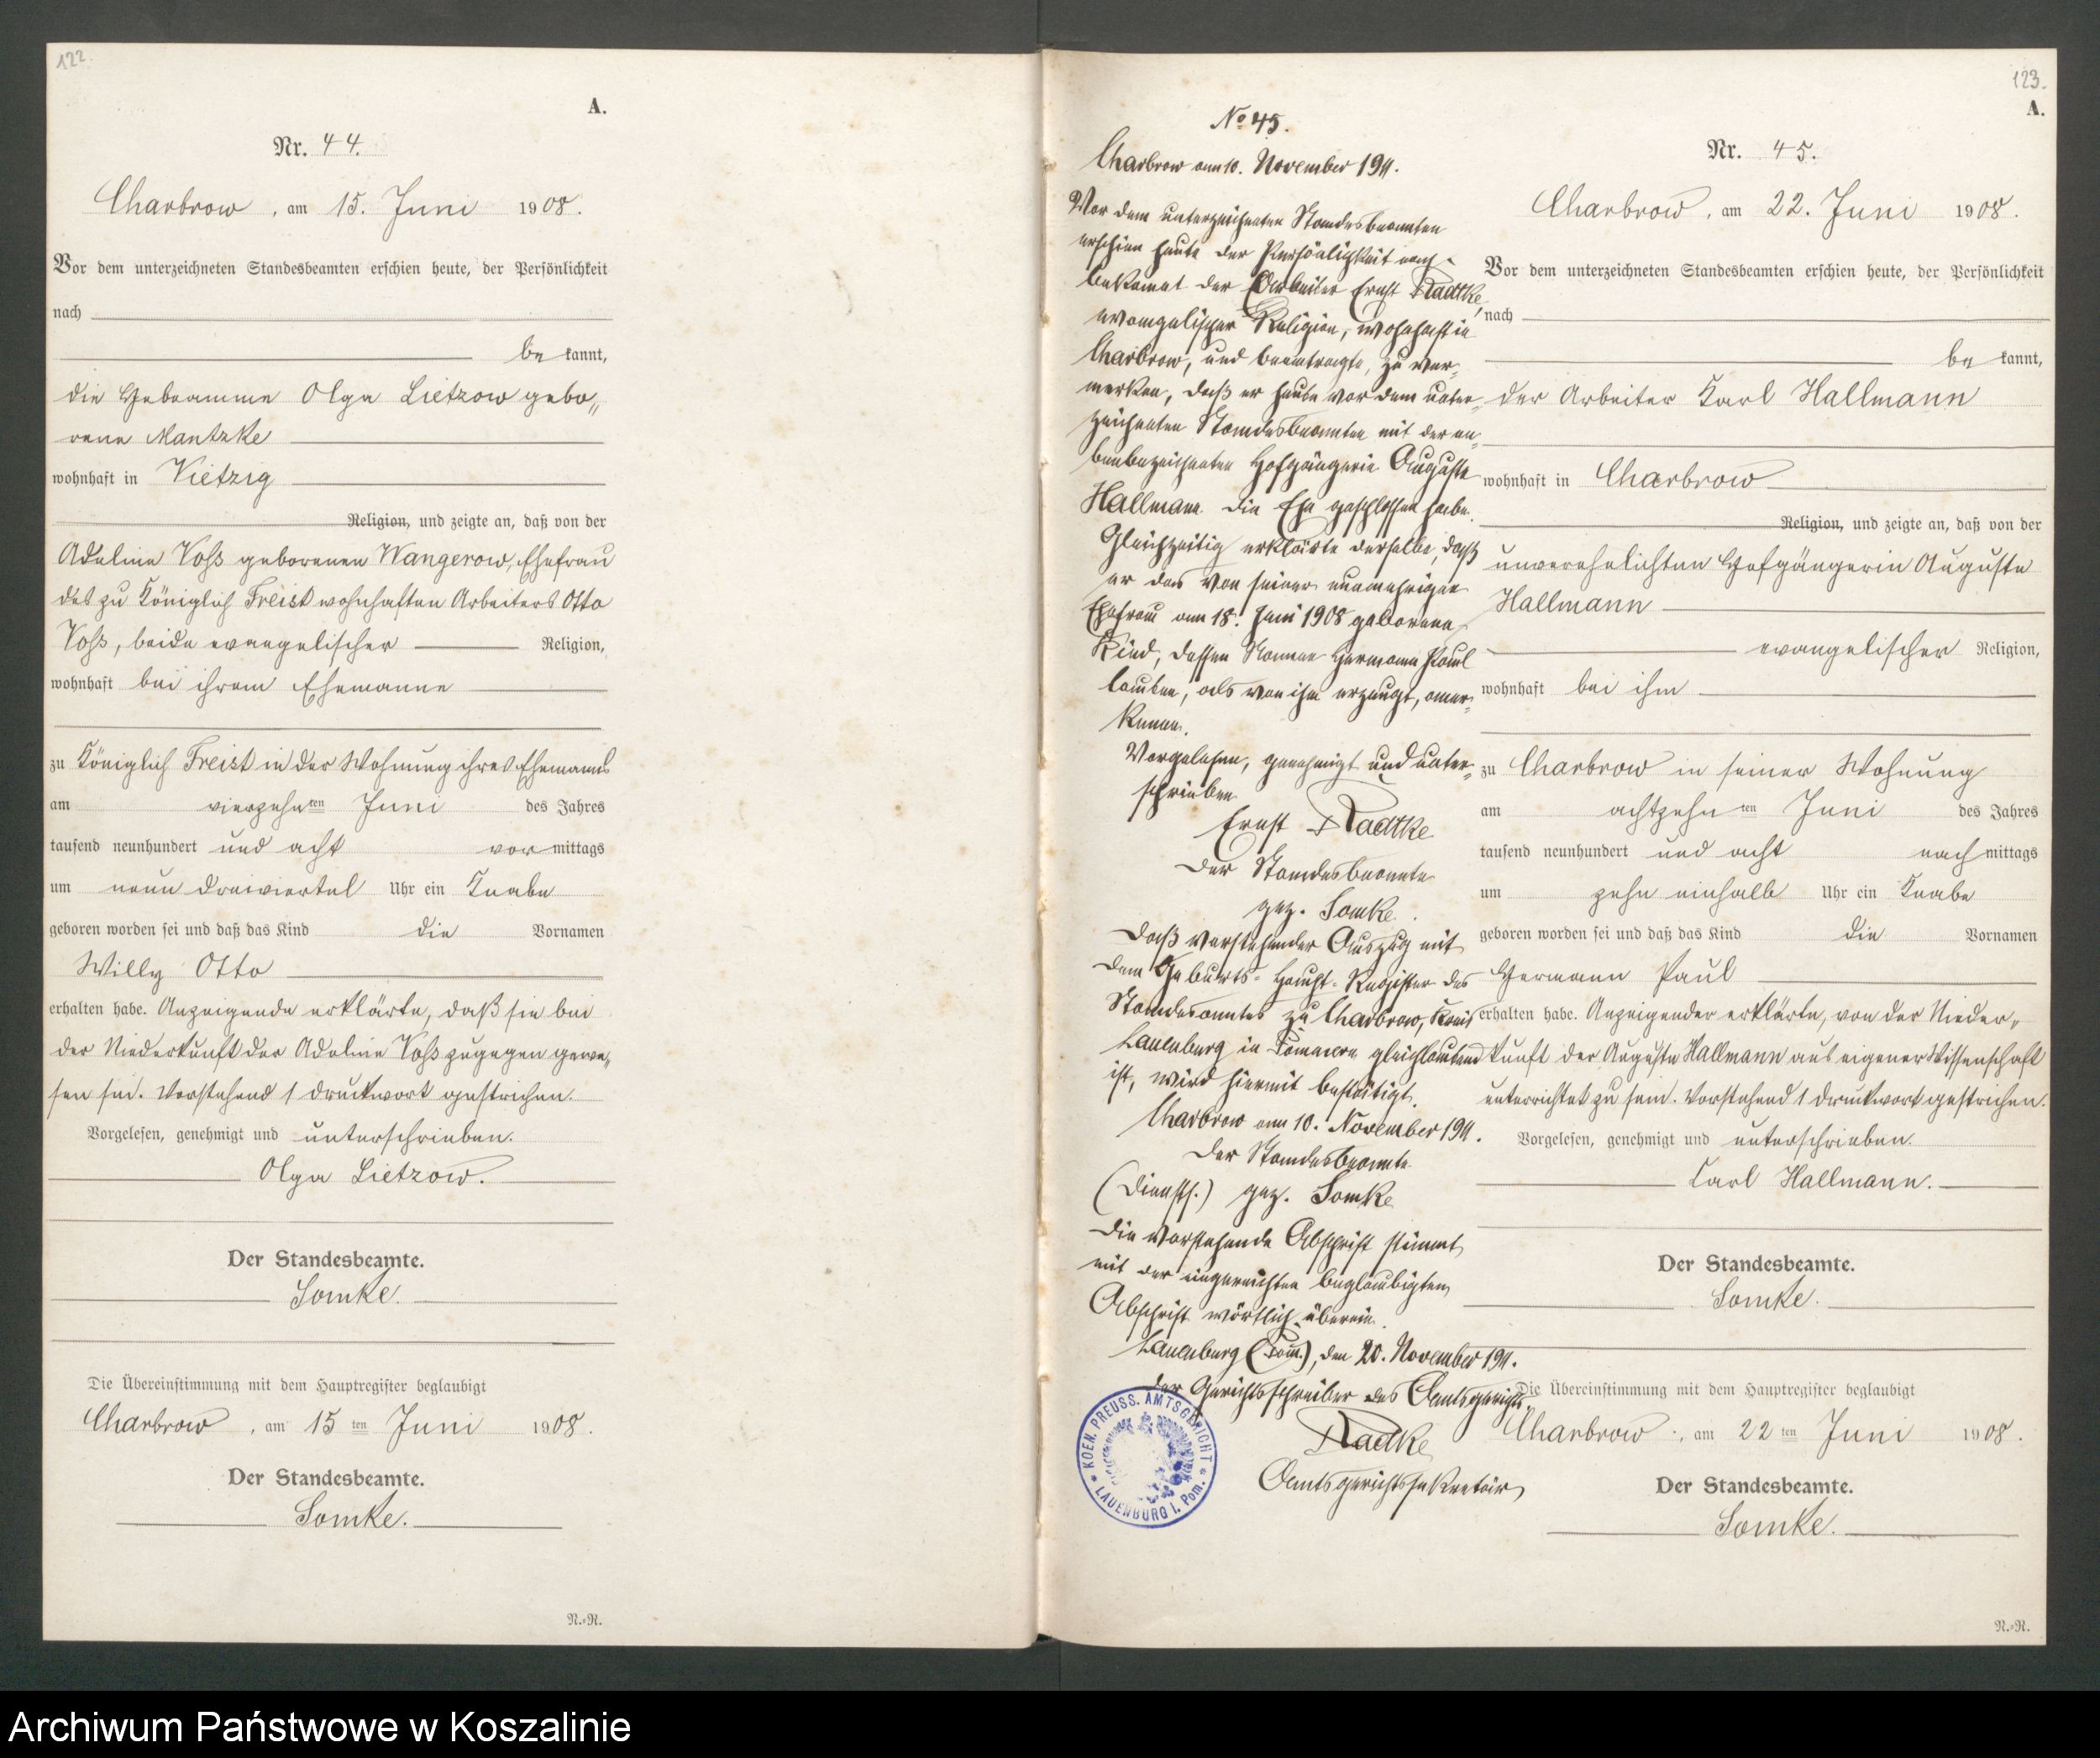 122.
A.
Nr. 44.
Charbrow, am 15. Juni 1908.
Vor dem unterzeichneten Standesbeamten erschien heute, der Persönlichkeit
nach
bekannt,
die Hebeamme Olga Lietzow gebo„
rene Mantzke
wohnhaft in Vietzig
Religion, und zeigte an, daß von der
Adeline Voß geborenen Wangerow, Ehefrau
des zu Königlich Freist wohnhaften Arbeiters Otto
Voß, beide evangelischer Religion,
wohnhaft bei ihrem Ehemanne
zu Königlich Freist in der Wohnung ihres Ehemanns
am vierzehnten Juni des Jahres
tausend neunhundert und acht vormittags
um neun dreiviertel Uhr ein Knabe
geboren worden sei und daß das Kind die Vornamen
Willy Otto
erhalten habe. Anzeigende erklärte, daß sie bei
der Niederkunft der Adeline Voß zugegen gewe„
sen sei. Vorstehend 1 Druckwort gestrichen.
Vorgelesen, genehmigt und unterschrieben.
Olga Lietzow.
Der Standesbeamte.
Somke.
Die Übereinstimmung mit dem Hauptregister beglaubigt
Charbrow, am 15ten Juni 1908.
Der Standesbeamte.
Somke.
N.=R.
No 45.
Charbrow am 10. November 1911.
Vor dem unterzeichneten Standesbeamten
erschien heute der Persönlichkeit nach
bekannt der Arbeiter Ernst Radtke,
evangelischer Religion, wohnhaft in
Charbrow, und beantragte, zu ver„
merken, daß er heute vor dem unter„
zeichneten Standesbeamten mit der ne„
benbezeichneten Hofgängerin Auguste
Hallmann die Ehe geschlossen habe.
Gleichzeitig erklärte derselbe, daß
er das von seiner nunmehrigen
Ehefrau am 18. Juni 1908 geborene
Kind, dessen Namen Hermann Paul
lauten, als von ihm erzeugt, aner„
kenne.
Vorgelesen, genehmigt und unter„
schrieben
Ernst Radtke
Der Standesbeamte
gez. Somke.
Daß vorstehender Auszug mit
dem Geburts-Haupt-Register des
Standesamtes zu Charbrow, Kreis
Lauenburg in Pommern gleichlautend
ist, wird hiermit bestätigt.
Charbrow am 10. November 1911.
Der Standesbeamte
(Dienst.) gez. Somke
Die vorstehende Abschrift stimmt
mit der eingereichten beglaubigten
Abschrift wörtlich überein.
Lauenburg (Pom.), den 20. November 1911.
Der Gerichtsschreiber des Amtsgerichts
Radtke
Amtsgerichtssekretär
KOEN. PREUSS. AMTSGERICHT * LAUENBURG I. Pom. *
123.
A.
Nr. 45.
Charbrow, am 22. Juni 1908.
Vor dem unterzeichneten Standesbeamten erschien heute, der Persönlichkeit
nach
bekannt,
der Arbeiter Karl Hallmann
wohnhaft in Charbrow
Religion, und zeigte an, daß von der
unverehelichten Hofgängerin Auguste
Hallmann
evangelischer Religion,
wohnhaft bei ihm
zu Charbrow in seiner Wohnung
am achtzehnten Juni des Jahres
tausend neunhundert und acht nachmittags
um zehn einhalb Uhr ein Knabe
geboren worden sei und daß das Kind die Vornamen
Hermann Paul
erhalten habe. Anzeigender erklärte, von der Nieder„
kunft der Auguste Hallmann aus eigener Wissenschaft
unterrichtet zu sein. Vorstehend 1 Druckwort gestrichen.
Vorgelesen, genehmigt und unterschrieben.
Karl Hallmann.
Der Standesbeamte.
Somke.
Die Übereinstimmung mit dem Hauptregister beglaubigt
Charbrow, am 22ten Juni 1908.
Der Standesbeamte.
Somke.
N.=R.
Archiwum Państwowe w Koszalinie